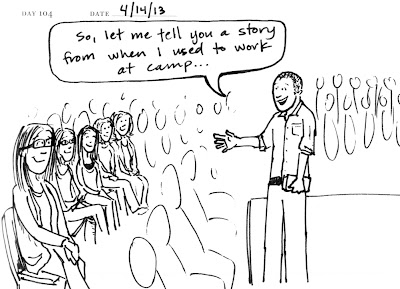 DAY 104 DATE 4/14/13
So, let me tell you a story
from when I used to work
at camp...